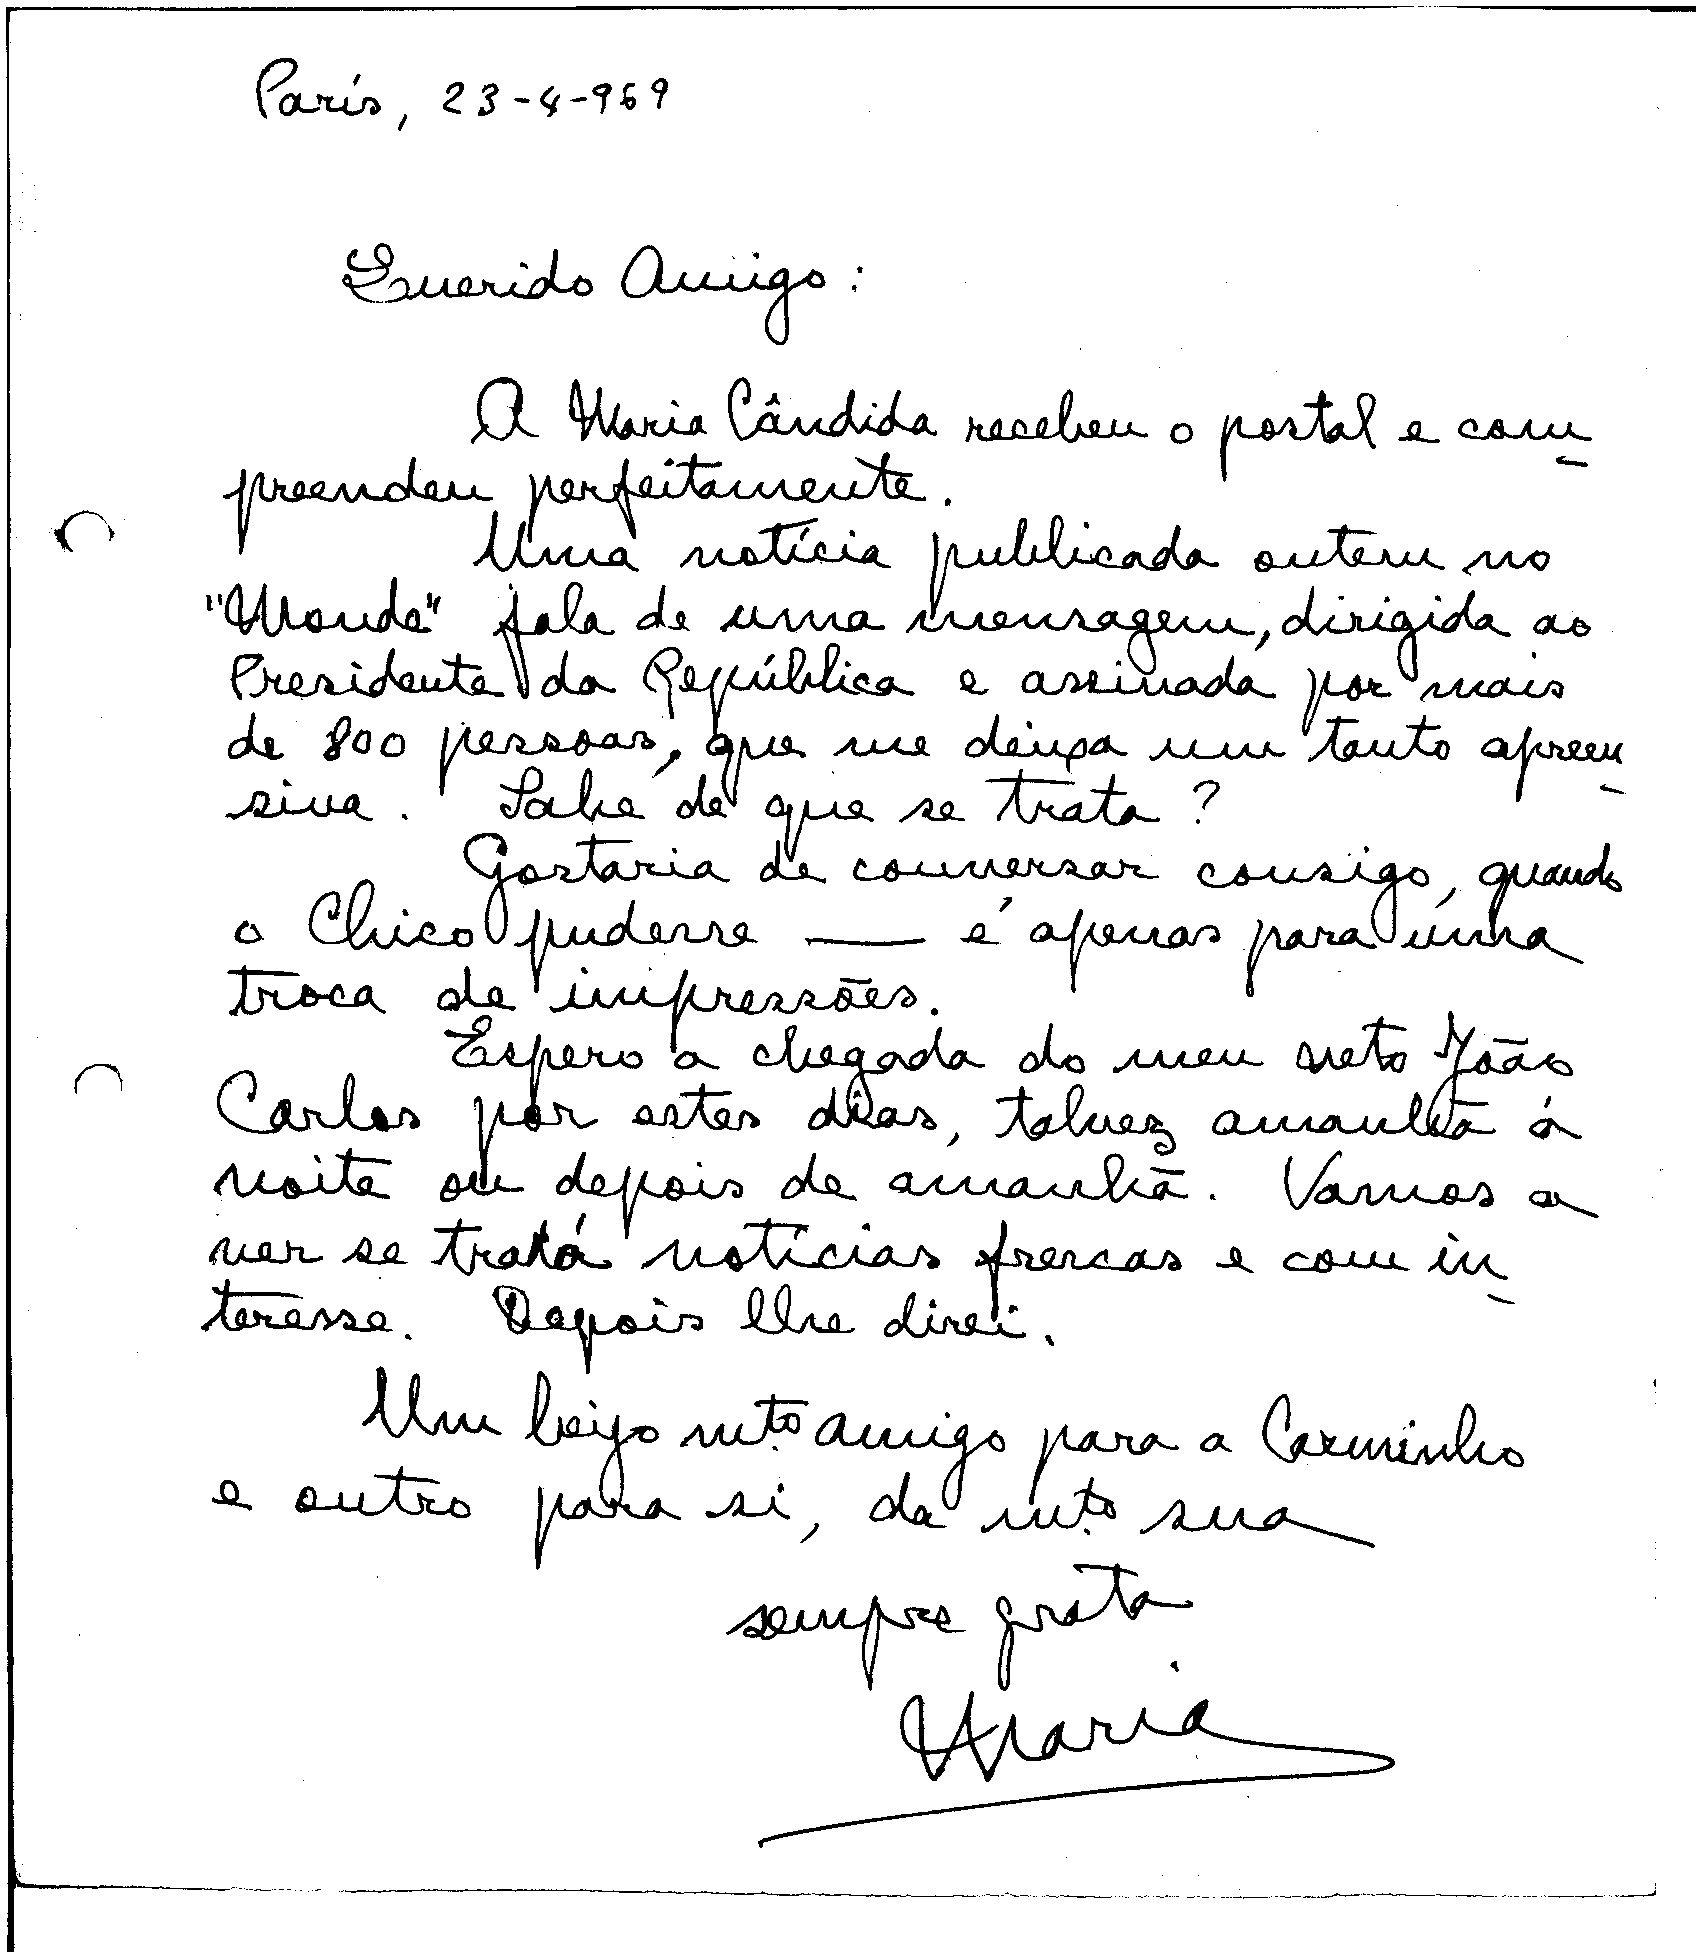 Paris, 23-4-969
Querido Amigo:
A Maria Cândida recebeu o postal e com-
preendeu perfeitamente.
Uma notícia publicada ontem no
"Monde" fala de uma mensagem, dirigida ao
Presidente da República e assinada por mais
de 800 pessoas, que me deixa um tanto apreen-
siva. Sabe de que se trata?
Gostaria de conversar consigo, quando
o Chico pudesse — é apenas para uma
troca de impressões.
Espero a chegada do meu neto João
Carlos por estes dias, talvez amanhã à
noite ou depois de amanhã. Vamos a
ver se trará notícias frescas e com in-
teresse. Depois lhe direi.
Um beijo mto amigo para a Carminho
e outro para si, da mto sua
sempre grata
Maria